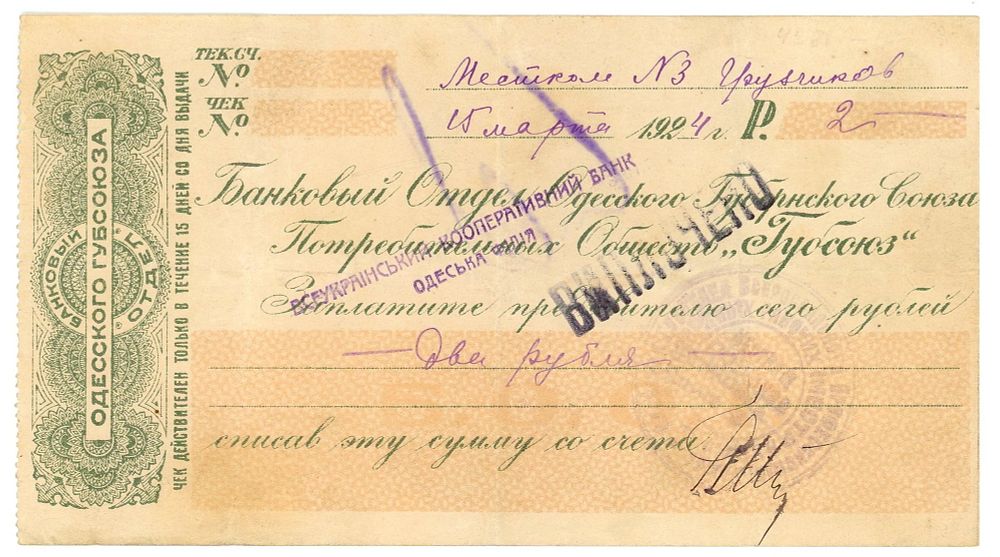 ТЕК. СЧ.
№
ЧЕК
№
Местком №3 Грузчиков
15 марта 1924 г. Р. 2—
Банковый Отдел Одесского Губернского Союза
Потребительных Обществ „Губсоюз“
Заплатите предъявителю сего рублей
— два рубля —
списав эту сумму со счета
БАНКОВЫЙ ОТДЕЛ
ОДЕССКОГО ГУБСОЮЗА
ЧЕК ДЕЙСТВИТЕЛЕН ТОЛЬКО В ТЕЧЕНИЕ 15 ДНЕЙ СО ДНЯ ВЫДАЧИ
ВСЕУКРАЇНСЬКИЙ КООПЕРАТИВНИЙ БАНК
ОДЕСЬКА ФІЛІЯ
ВИПЛАЧЕНО